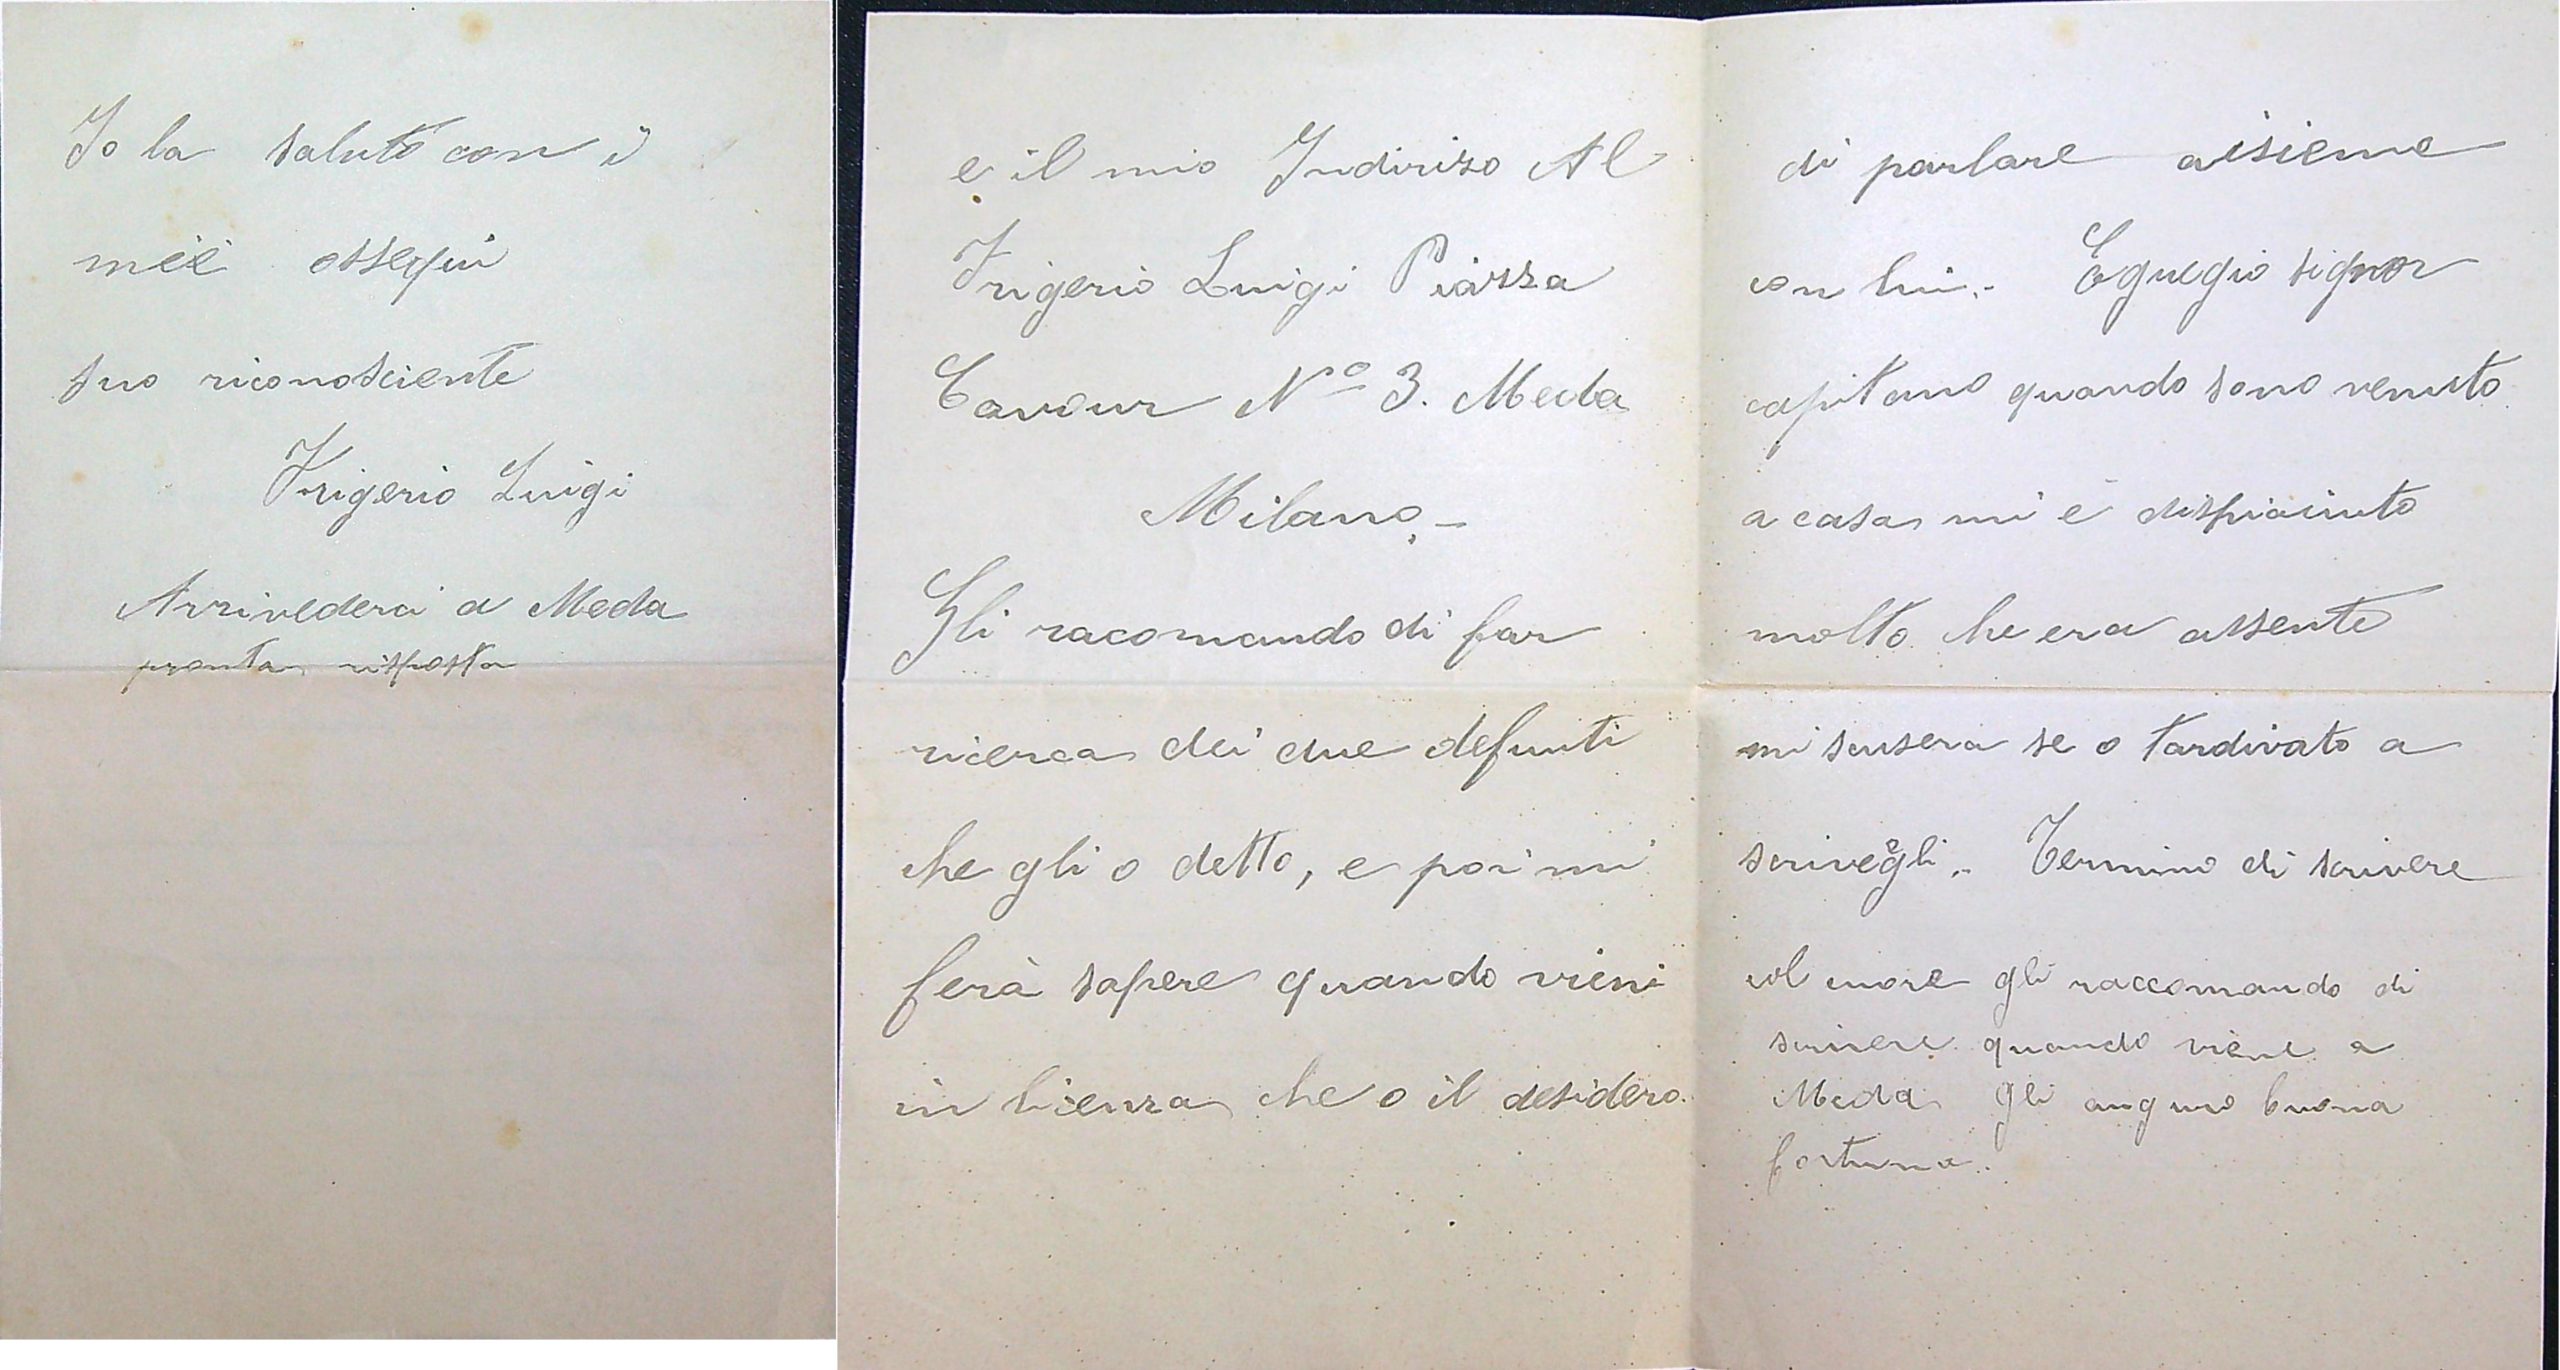 Io la saluto con i
miei ossequi
suo riconosciente
Frigerio Luigi
Arrivederci a Meda
pronta risposta
e il mio Indirizo Al
Frigerio Luigi Piazza
Cavour Nº 3. Meda
Milano –
Gli racomando di far
ricerca dei due defunti
che gli o detto, e poi mi
ferà sapere quando vieni
in licenza che o il desidero
di parlare aisieme
con lui.. Egregio signor
capitano quando sono venuto
a casa mi è dispiaciuto
molto che era assente
mi scuserà se o tardivato a
scrivegli.. Termino di scrivere
col cuore gli raccomando di
scrivere quando viene a
Meda gli auguro buona
fortuna.